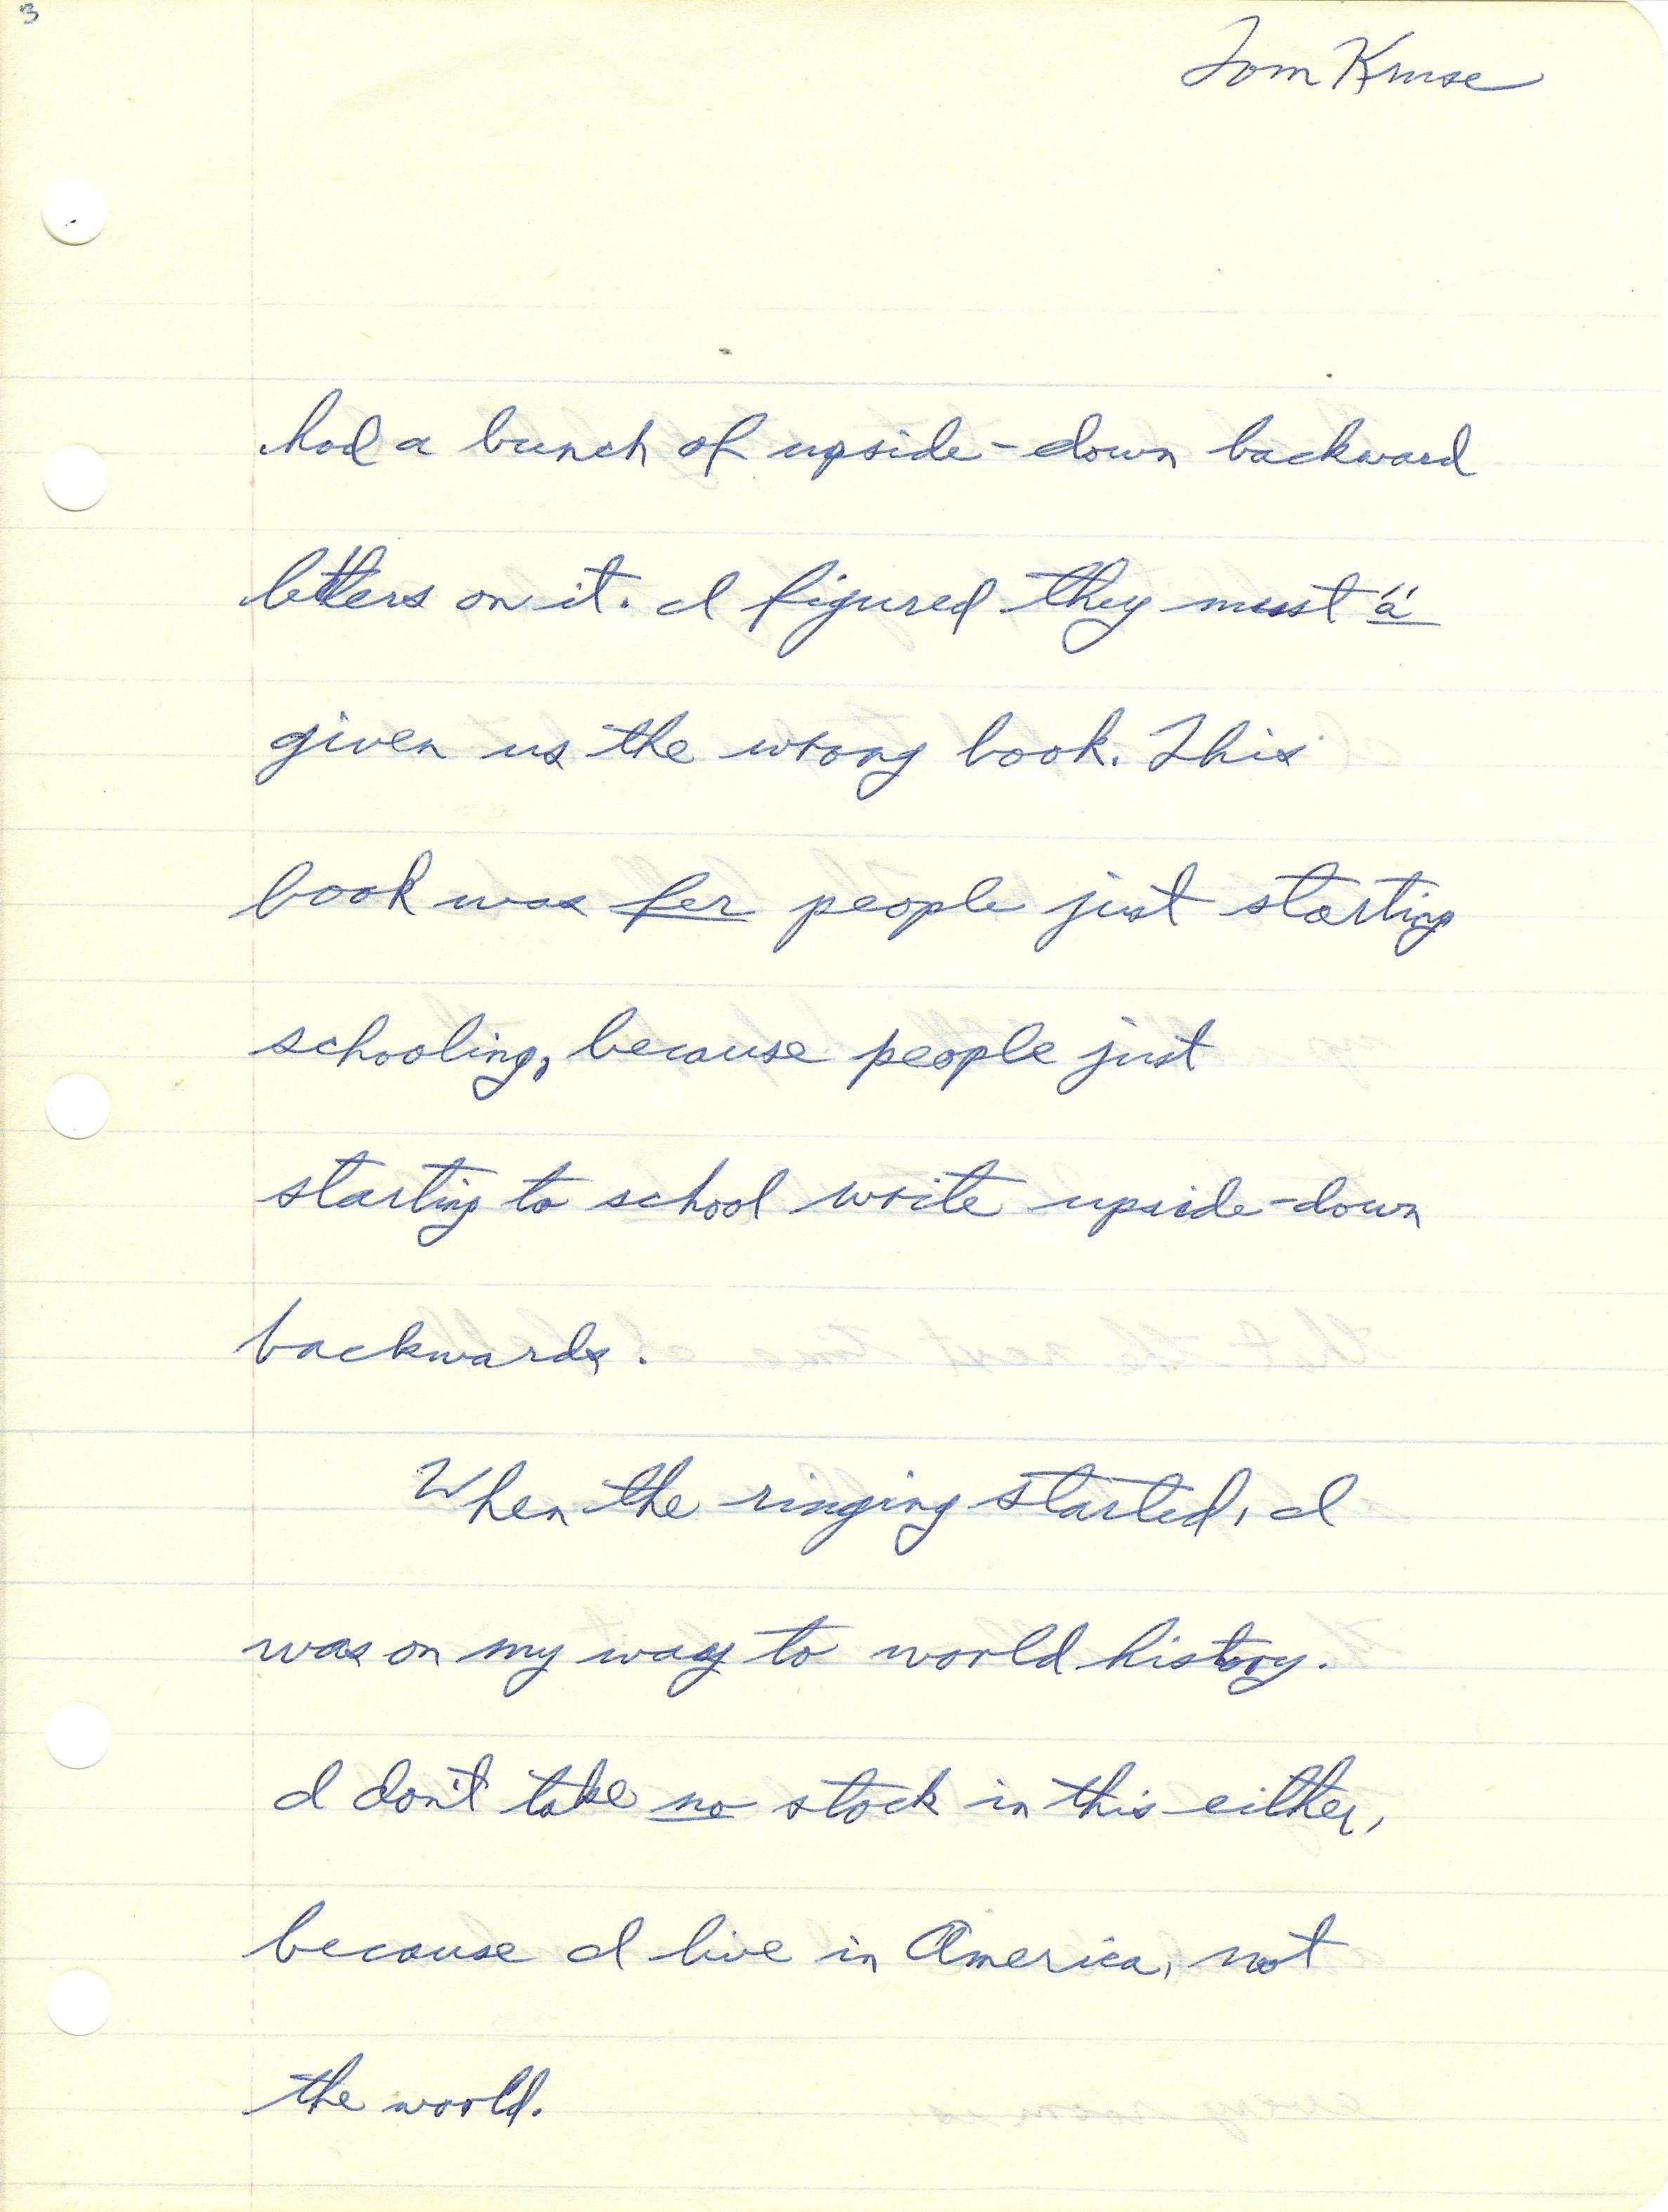 3
Tom Kruse
had a bunch of upside-down backward
letters on it. I figured they must 'a'
given us the wrong book. This
book was fer people just starting
schooling, because people just
starting to school write upside-down
backwards.
When the ringing started, I
was on my way to world history.
I don't take no stock in this either,
because I live in America, not
the world.